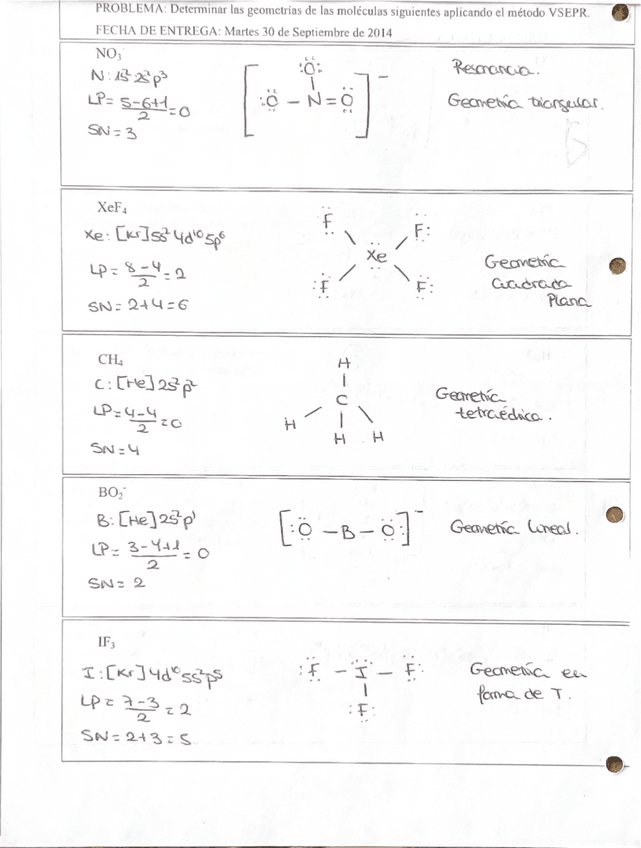 PROBLEMA: Determinar las geometrías de las moléculas siguientes aplicando el método VSEPR.
FECHA DE ENTREGA: Martes 30 de Septiembre de 2014
NO₃⁻
N: 1s² 2s² p³
LP = (5-6+1)/2 = 0
SN = 3
[:Ö - N = Ö]⁻
:Ö:
Resonancia.
Geometría triangular.
XeF₄
Xe: [Kr] 5s² 4d¹⁰ 5p⁶
LP = (8-4)/2 = 2
SN = 2+4 = 6
F F:
Xe
:F F:
Geometría
Cuadrada
Plana
CH₄
C: [He] 2s² p²
LP = (4-4)/2 = 0
SN = 4
H
C
H H H
Geometría
tetraédrica.
BO₂⁻
B: [He] 2s² p¹
LP = (3-4+1)/2 = 0
SN = 2
[:Ö - B - Ö:]⁻
Geometría lineal.
IF₃
I: [Kr] 4d¹⁰ 5s² p⁵
LP = (7-3)/2 = 2
SN = 2+3 = 5
:F - I - F:
:F:
Geometría en
forma de T.